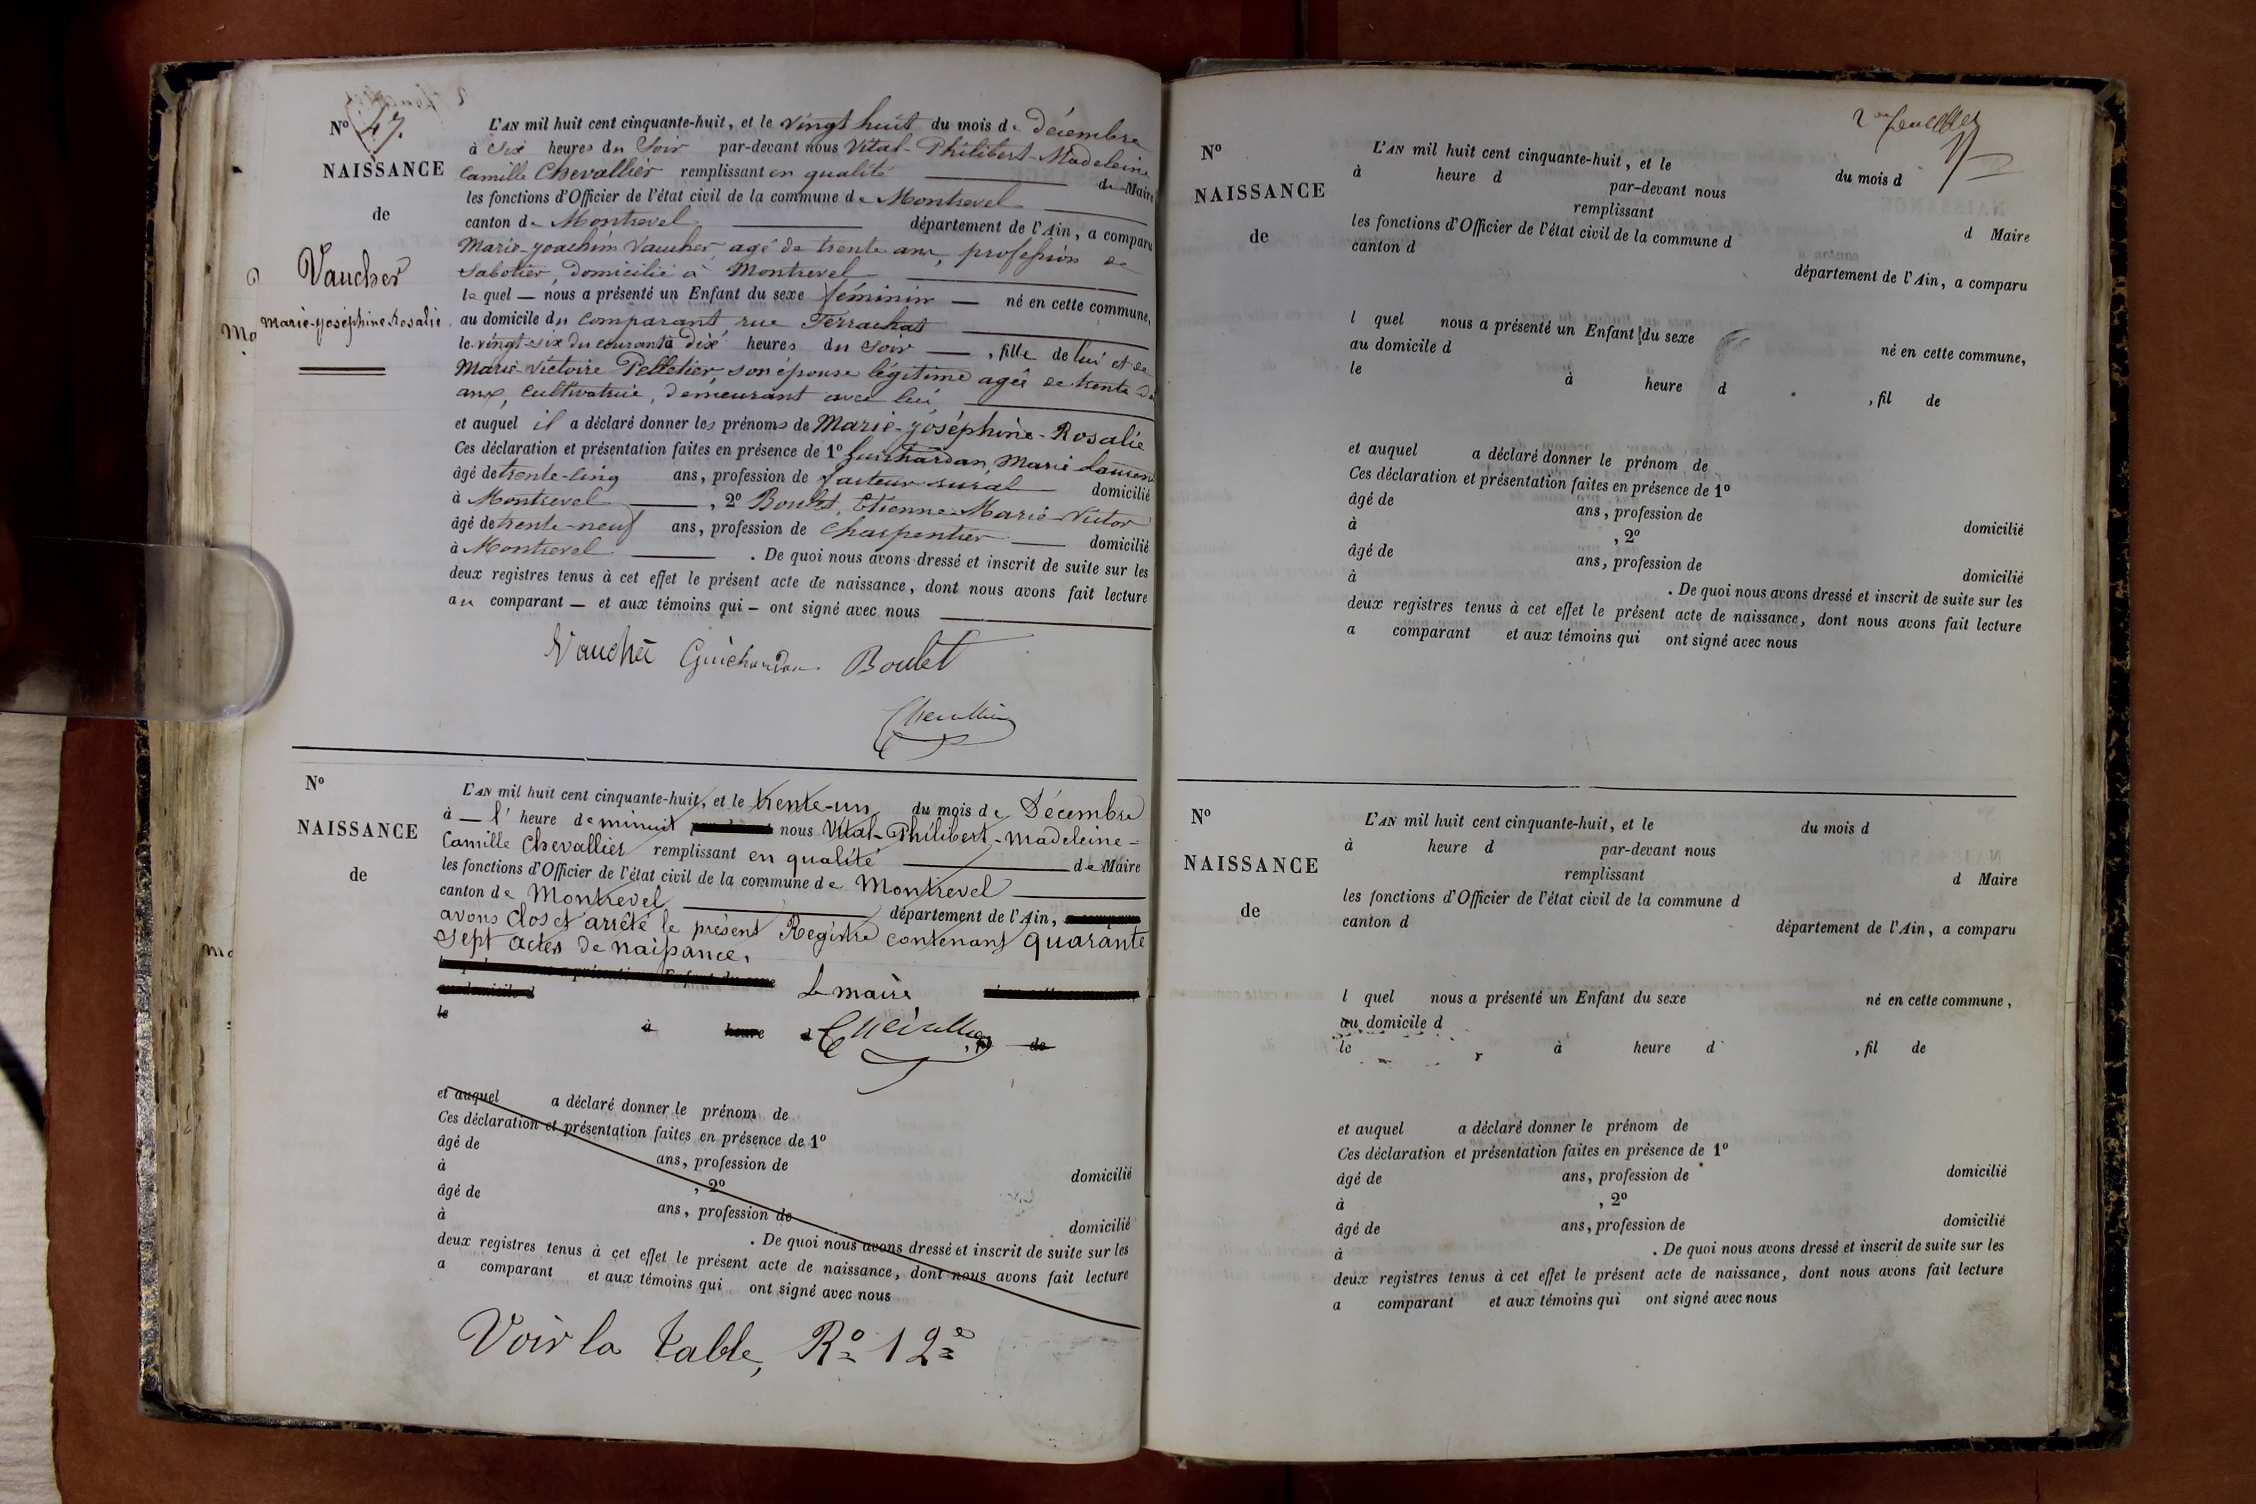 Nº 47.
NAISSANCE
de
Vaucher
Marie-Joséphine Rosalie
L'AN mil huit cent cinquante-huit, et le vingt huit du mois de Décembre
à Six heures du Soir par-devant nous Vital-Philibert-Madeleine
Camille Chevallier remplissant en qualité de Maire
les fonctions d'Officier de l'état civil de la commune de Montrevel
canton de Montrevel département de l'Ain, a comparu
Marie-Joachim Vaucher, agé de trente ans, profession de
Sabotier, domicilié à Montrevel
lequel nous a présenté un Enfant du sexe féminin né en cette commune,
au domicile du comparant, rue Terrachat
le vingt-six du courant à dix heures du Soir, fille de lui et de
Marie-Victoire Pelletier, son épouse légitime agée de trente
ans, cultivatrice, demeurant avec lui
et auquel il a déclaré donner les prénoms de Marie-Joséphine-Rosalie
Ces déclaration et présentation faites en présence de 1º Guichardan, Marie Laurent
âgé de trente-cinq ans, profession de facteur rural domicilié
à Montrevel, 2º Boulet, Etienne-Marie-Victor
âgé de trente-neuf ans, profession de charpentier domicilié
à Montrevel. De quoi nous avons dressé et inscrit de suite sur les
deux registres tenus à cet effet le présent acte de naissance, dont nous avons fait lecture
au comparant et aux témoins qui ont signé avec nous
Vaucher Guichardan Boulet
Chevallier
Nº
NAISSANCE
de
L'AN mil huit cent cinquante-huit, et le trente-un du mois de Décembre
à l'heure de minuit nous Vital-Philibert-Madeleine-
Camille Chevallier remplissant en qualité de Maire
les fonctions d'Officier de l'état civil de la commune de Montrevel
canton de Montrevel département de l'Ain,
avons clos et arrêté le présent Registre contenant quarante
sept actes de naissance.
Le maire
le à heure d , fil de
Chevallier
et auquel a déclaré donner le prénom de
Ces déclaration et présentation faites en présence de 1º
âgé de ans, profession de domicilié
à , 2º
âgé de ans, profession de domicilié
à . De quoi nous avons dressé et inscrit de suite sur les
deux registres tenus à cet effet le présent acte de naissance, dont nous avons fait lecture
a comparant et aux témoins qui ont signé avec nous
Voir la table, Rº 12e
Nº
NAISSANCE
de
L'AN mil huit cent cinquante-huit, et le du mois d
à heure d par-devant nous
remplissant d Maire
les fonctions d'Officier de l'état civil de la commune d
canton d département de l'Ain, a comparu
l quel nous a présenté un Enfant du sexe né en cette commune,
au domicile d
le à heure d , fil de
et auquel a déclaré donner le prénom de
Ces déclaration et présentation faites en présence de 1º
âgé de ans, profession de domicilié
à , 2º
âgé de ans, profession de domicilié
à . De quoi nous avons dressé et inscrit de suite sur les
deux registres tenus à cet effet le présent acte de naissance, dont nous avons fait lecture
a comparant et aux témoins qui ont signé avec nous
Nº
NAISSANCE
de
L'AN mil huit cent cinquante-huit, et le du mois d
à heure d par-devant nous
remplissant d Maire
les fonctions d'Officier de l'état civil de la commune d
canton d département de l'Ain, a comparu
l quel nous a présenté un Enfant du sexe né en cette commune,
au domicile d
le à heure d , fil de
et auquel a déclaré donner le prénom de
Ces déclaration et présentation faites en présence de 1º
âgé de ans, profession de domicilié
à , 2º
âgé de ans, profession de domicilié
à . De quoi nous avons dressé et inscrit de suite sur les
deux registres tenus à cet effet le présent acte de naissance, dont nous avons fait lecture
a comparant et aux témoins qui ont signé avec nous